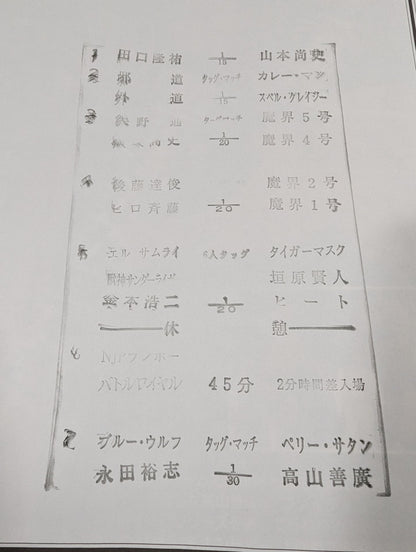 1 田口隆祐 1/15 山本尚史
2 邪道 タッグ・マッチ カレー・マン
外道 1/15 スペル・クレイジー
3 矢野通 タッグ・マッチ 魔界5号
飯塚高史 1/20 魔界4号
4 後藤達俊 魔界2号
ヒロ斉藤 1/20 魔界1号
5 エル サムライ 6人タッグ タイガーマスク
獣神サンダーライガー 垣原賢人
金本浩二 1/20 ヒート
休 憩
6 NJPランボー
バトルロイヤル 45分 2分時間差入場
7 ブルー・ウルフ タッグ・マッチ ペリー・サタン
永田裕志 1/30 高山善廣